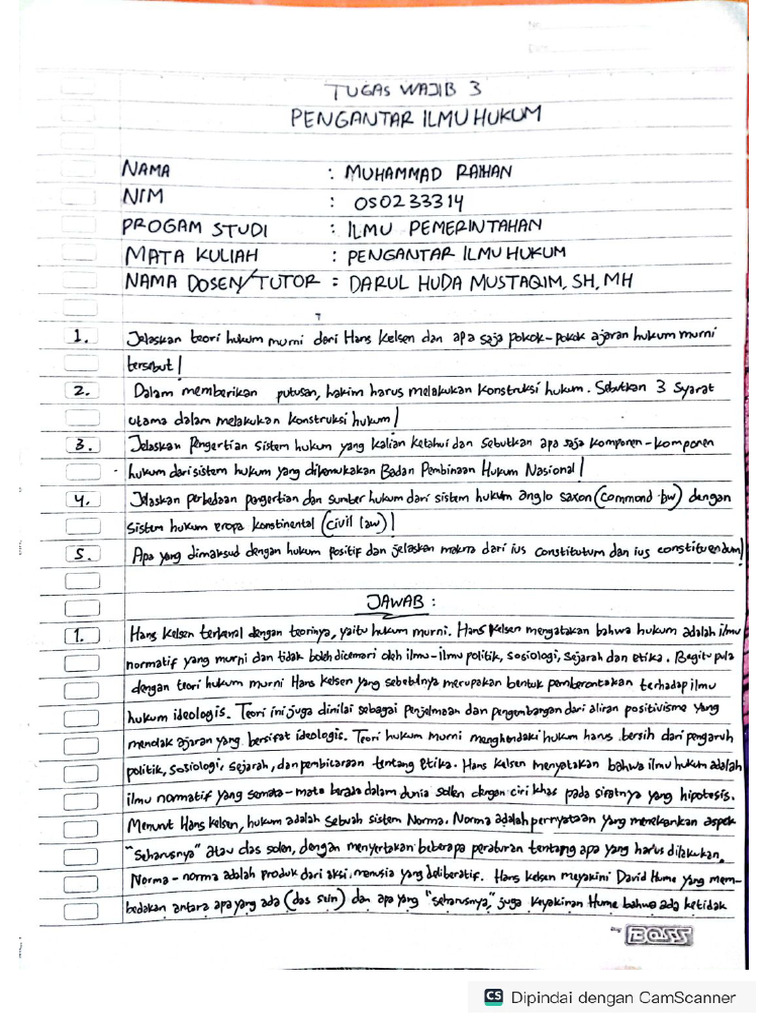 No.
Date
TUGAS WAJIB 3
PENGANTAR ILMU HUKUM
NAMA : MUHAMMAD RAIHAN
NIM : 050233314
PROGAM STUDI : ILMU PEMERINTAHAN
MATA KULIAH : PENGANTAR ILMU HUKUM
NAMA DOSEN/TUTOR : DARUL HUDA MUSTAQIM, SH, MH
1. Jelaskan teori hukum murni dari Hans Kelsen dan apa saja pokok-pokok ajaran hukum murni
tersebut!
2. Dalam memberikan putusan, hakim harus melakukan konstruksi hukum. Sebutkan 3 syarat
utama dalam melakukan konstruksi hukum!
3. Jelaskan pengertian sistem hukum yang kalian ketahui dan sebutkan apa saja komponen-komponen
hukum dari sistem hukum yang dikemukakan Badan Pembinaan Hukum Nasional!
4. Jelaskan perbedaan pengertian dan sumber hukum dari sistem hukum anglo saxon (commond law) dengan
sistem hukum eropa konstinental (civil law)!
5. Apa yang dimaksud dengan hukum positif dan jelaskan makna dari ius constitutum dan ius constituendum!
JAWAB :
1. Hans Kelsen terkenal dengan teorinya, yaitu hukum murni. Hans Kelsen mengatakan bahwa hukum adalah ilmu
normatif yang murni dan tidak boleh dicemari oleh ilmu-ilmu politik, sosiologi, sejarah dan etika. Begitu pula
dengan teori hukum murni Hans Kelsen yang sebetulnya merupakan bentuk pemberontakan terhadap ilmu
hukum ideologis. Teori ini juga dinilai sebagai penjelmaan dan pengembangan dari aliran positivisme yang
menolak ajaran yang bersifat ideologis. Teori hukum murni menghendaki hukum harus bersih dari pengaruh
politik, sosiologi, sejarah, dan pembicaraan tentang etika. Hans Kelsen menyatakan bahwa ilmu hukum adalah
ilmu normatif yang semata-mata berada dalam dunia sollen dengan ciri khas pada sifatnya yang hipotesis.
Menurut Hans Kelsen, hukum adalah sebuah sistem Norma. Norma adalah pernyataan yang menekankan aspek
"seharusnya" atau das solen, dengan menyertakan beberapa peraturan tentang apa yang harus dilakukan.
Norma-norma adalah produk dari aksi manusia yang deliberatif. Hans Kelsen meyakini David Hume yang mem-
bedakan antara apa yang ada (das sein) dan apa yang "seharusnya," juga keyakinan Hume bahwa ada ketidak
by BOSS
CS Dipindai dengan CamScanner